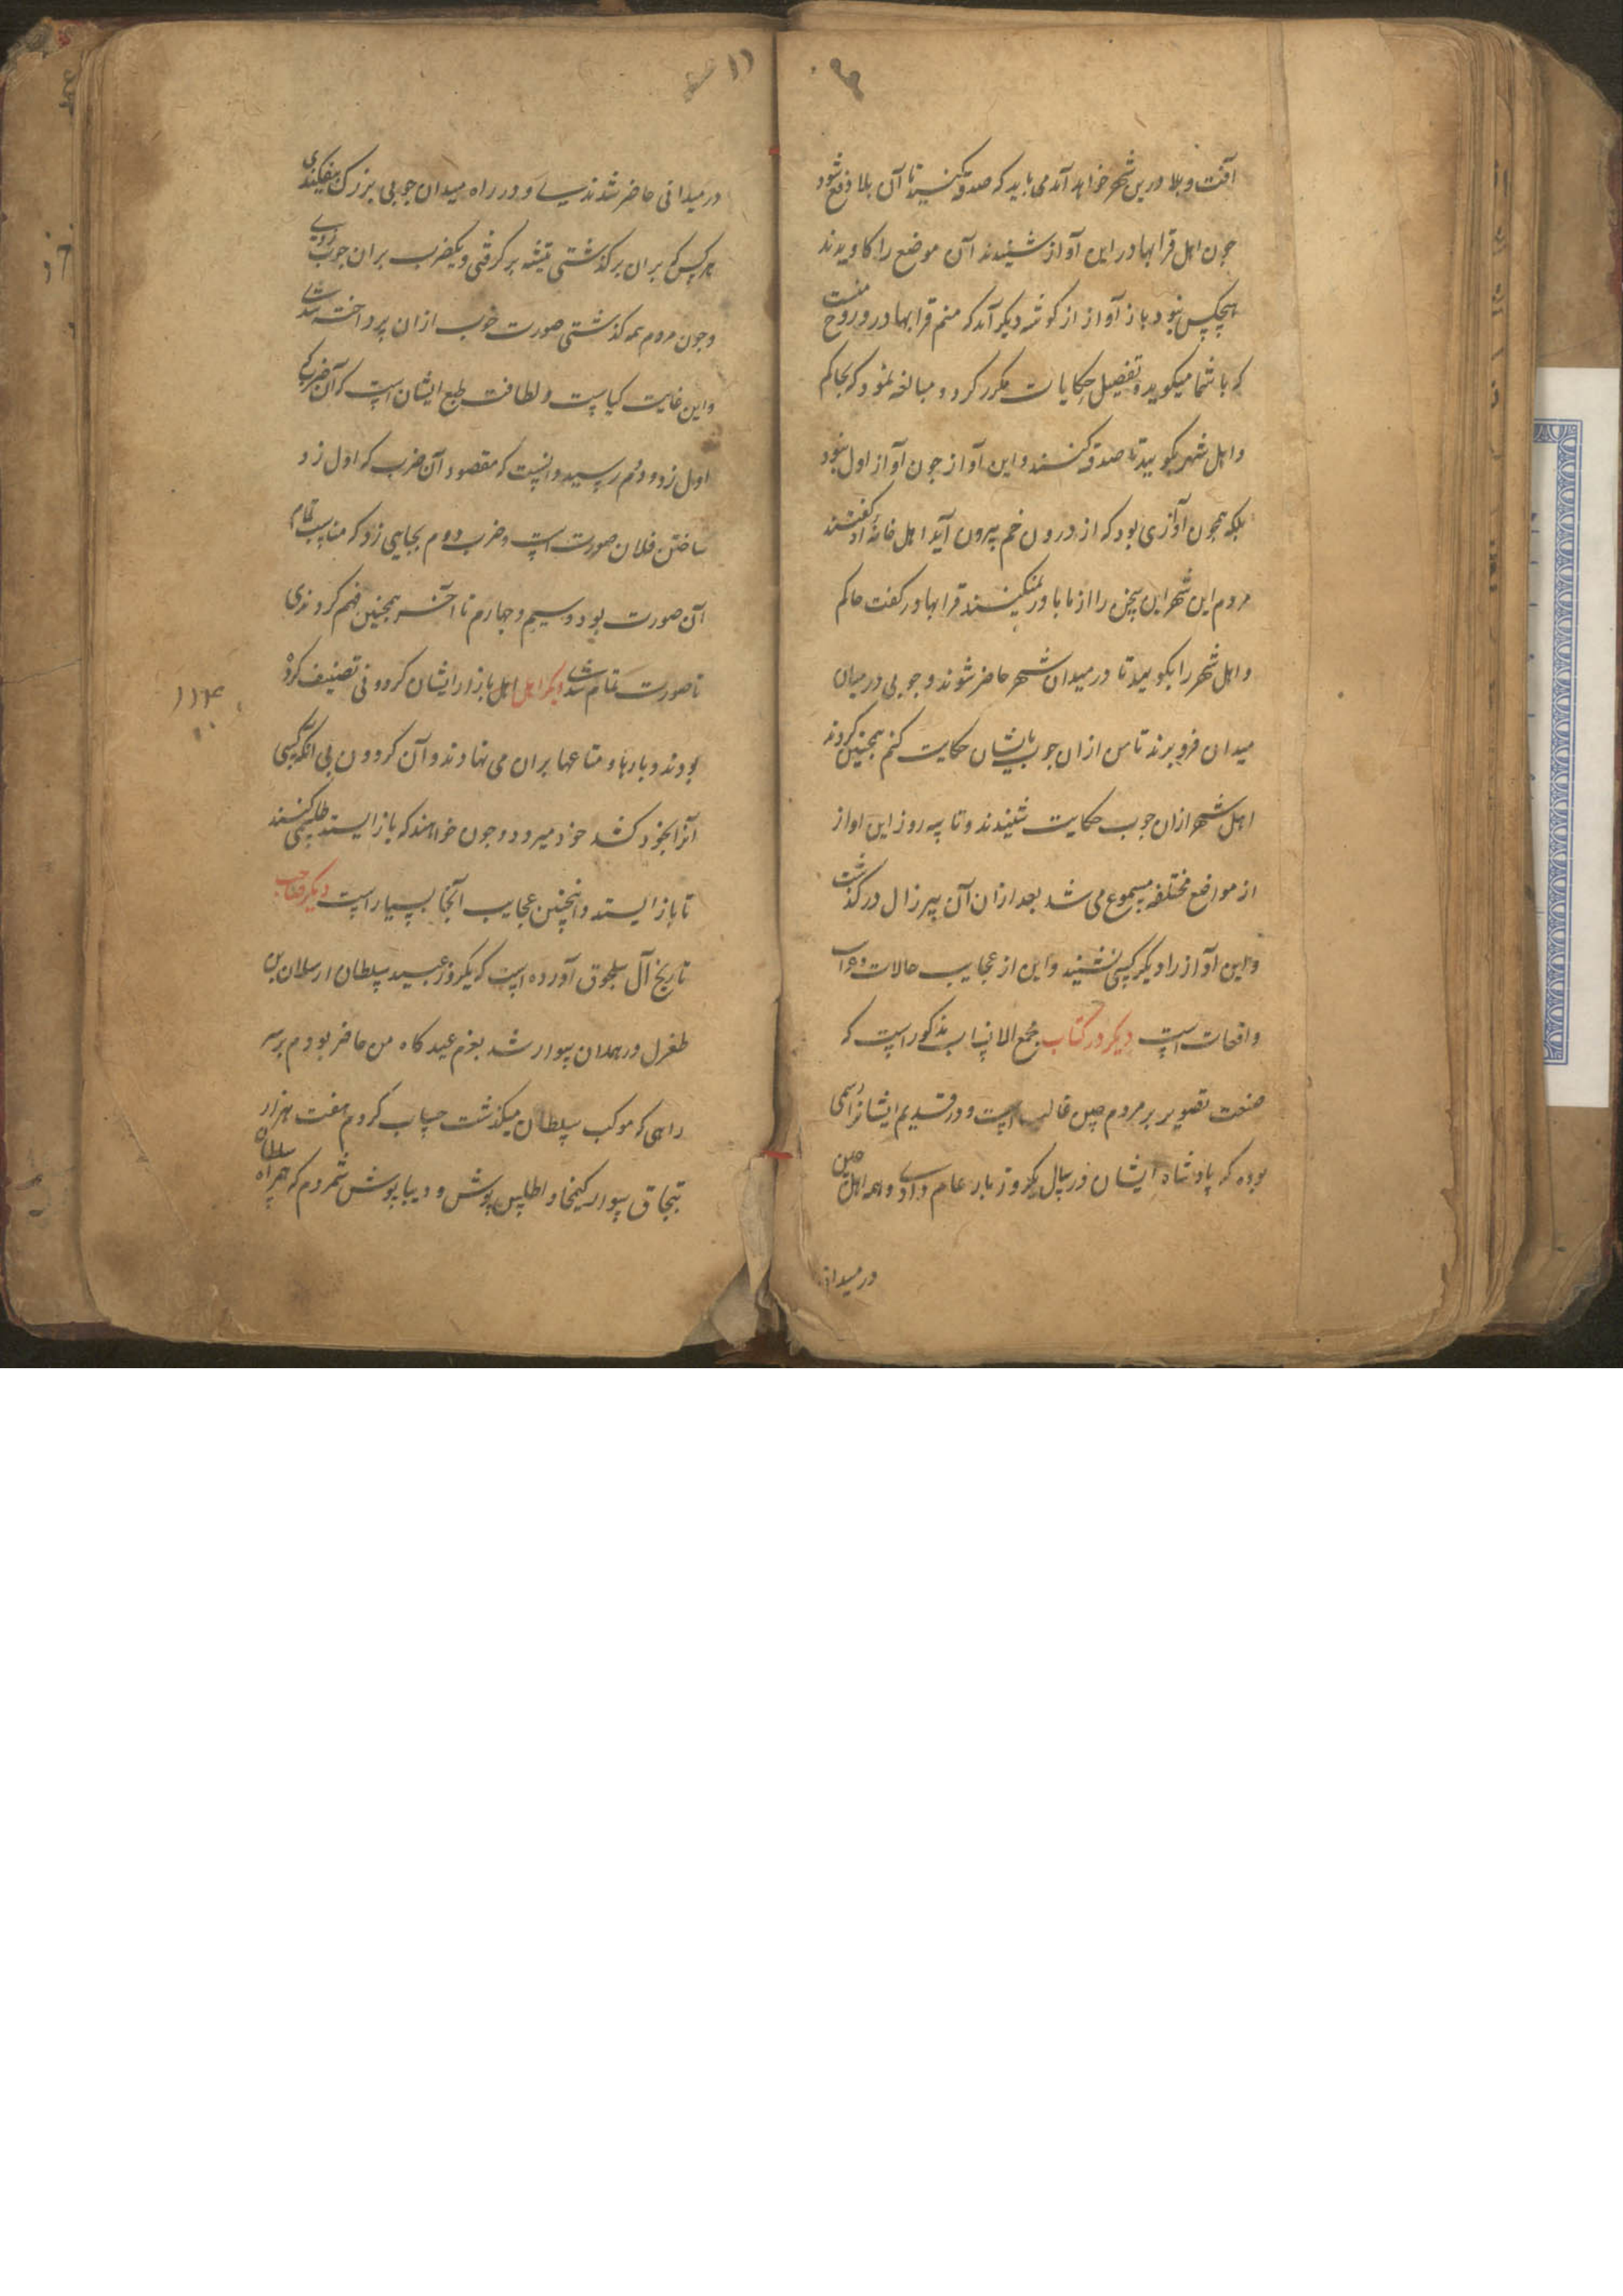 آفت و بلا درین شهر خواهد آمد می باید که صدقه کنید تا آن بلا دفع شود
چون اهل قرابهادر این آواز شنیدند آن موضع را کاویدند
هیچکس نبود باز آواز از کوشه دیکر آمد که منم قرابهادر و روح منست
که با شما میکوید و تفصیل حکایات مکرر کرد و مبالغه نمود که بحاکم
و اهل شهر بکویید تا صدقه کنند و این آواز چون آواز اول نبود
بلکه همچون آوازی بود که از درون خم بیرون آید اهل خانه او کفتند
مردم این شهر این سخن را از ما باور نمیکنند قرابهادر کفت حاکم
و اهل شهر را بکویید تا در میدان شهر حاضر شوند و چوبی در میان
میدان فرو برند تا من از ان چوب بایشان حکایت کنم همچنین کردند
اهل شهر ازان چوب حکایت شنیدند و تا سه روز این اواز
از مواضع مختلفه مسموع می شد بعد ازان آن پیرزال در کذشت
و این آواز را دیکر کسی نشنید و این از عجایب حالات و غرایب
واقعات است دیکر در کتاب مجمع الانساب مذکور است که
صنعت تصویر بر مردم چین غالب است و در قدیم ایشانرا رسمی
بوده که پادشاه ایشان در سال یکروز بار عام دادی و همه اهل چین
در میدانی
۱۱
در میدانی حاضر شدندی و در راه میدان چوبی بزرک بیفکندی
هر کس که بران بر کذشتی تیشه بر کرفتی و یکضرب بران چوب زدی
و چون مردم همه کذشتی صورت خوب ازان پرداخته شدی
و این غایت کیاست و لطافت طبع ایشان است که آن ضرب که
اول زد و دوم رسید دانست که مقصود آن ضرب که اول زد
ساختن فلان صورت است و ضرب دوم بجایی زد که مناسب تمام
آن صورت بود و سیم و چهارم تا آخر همچنین فهم کردندی
تا صورت تمام شدی دیکر اهل اهل بازار ایشان کردونی تصنیف کرده
بودند و بارها و متاعها بران می نهادند و آن کردون بی انکه کسی
آنرا بخود کشد خود میرود و چون خواهند که باز ایستد طلسمی کنند
تا باز ایستد و اینچنین عجایب آنجا بسیار است دیکر صاحب
تاریخ آل سلجوق آورده است که یکروز عید سلطان ارسلان بن
طغرل در همدان سوار شد بعزم عید کاه من حاضر بودم بر سر
راهی که موکب سلطان میکذشت حساب کردم هفت هزار
قبچاق سوار کمخا و اطلس پوش و دیبا پوش شمردم که همراه سلطان
۱۱۴